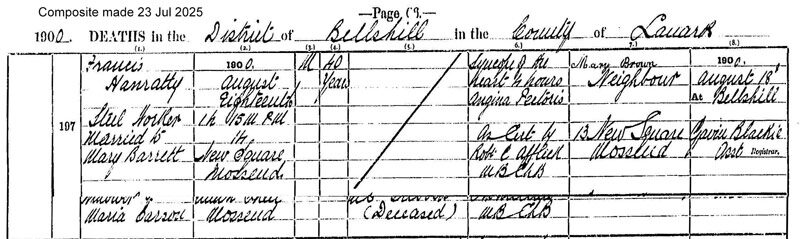 Composite made 23 Jul 2025
—Page 69.—
1900. DEATHS in the District of Bellshill in the County of Lanark
(1.) (2.) (3.) (4.) (5.) (6.) (7.) (8.)
Francis 1900. M 40 Syncope of the Mary Brown 1900.
Hanratty August Years heart ½ hours Neighbour August 18th
Eighteenth Angina Pectoris At Bellshill
197 Steel Worker 1h 15m P.M.
Married to 14 As Cert by 13 New Square Gavin Blackie
Mary Barrett New Square Robt C Affleck Mossend Asst Registrar.
Mossend M.B. Ch.B
Maria Mossend (Deceased) M.B. Ch.B